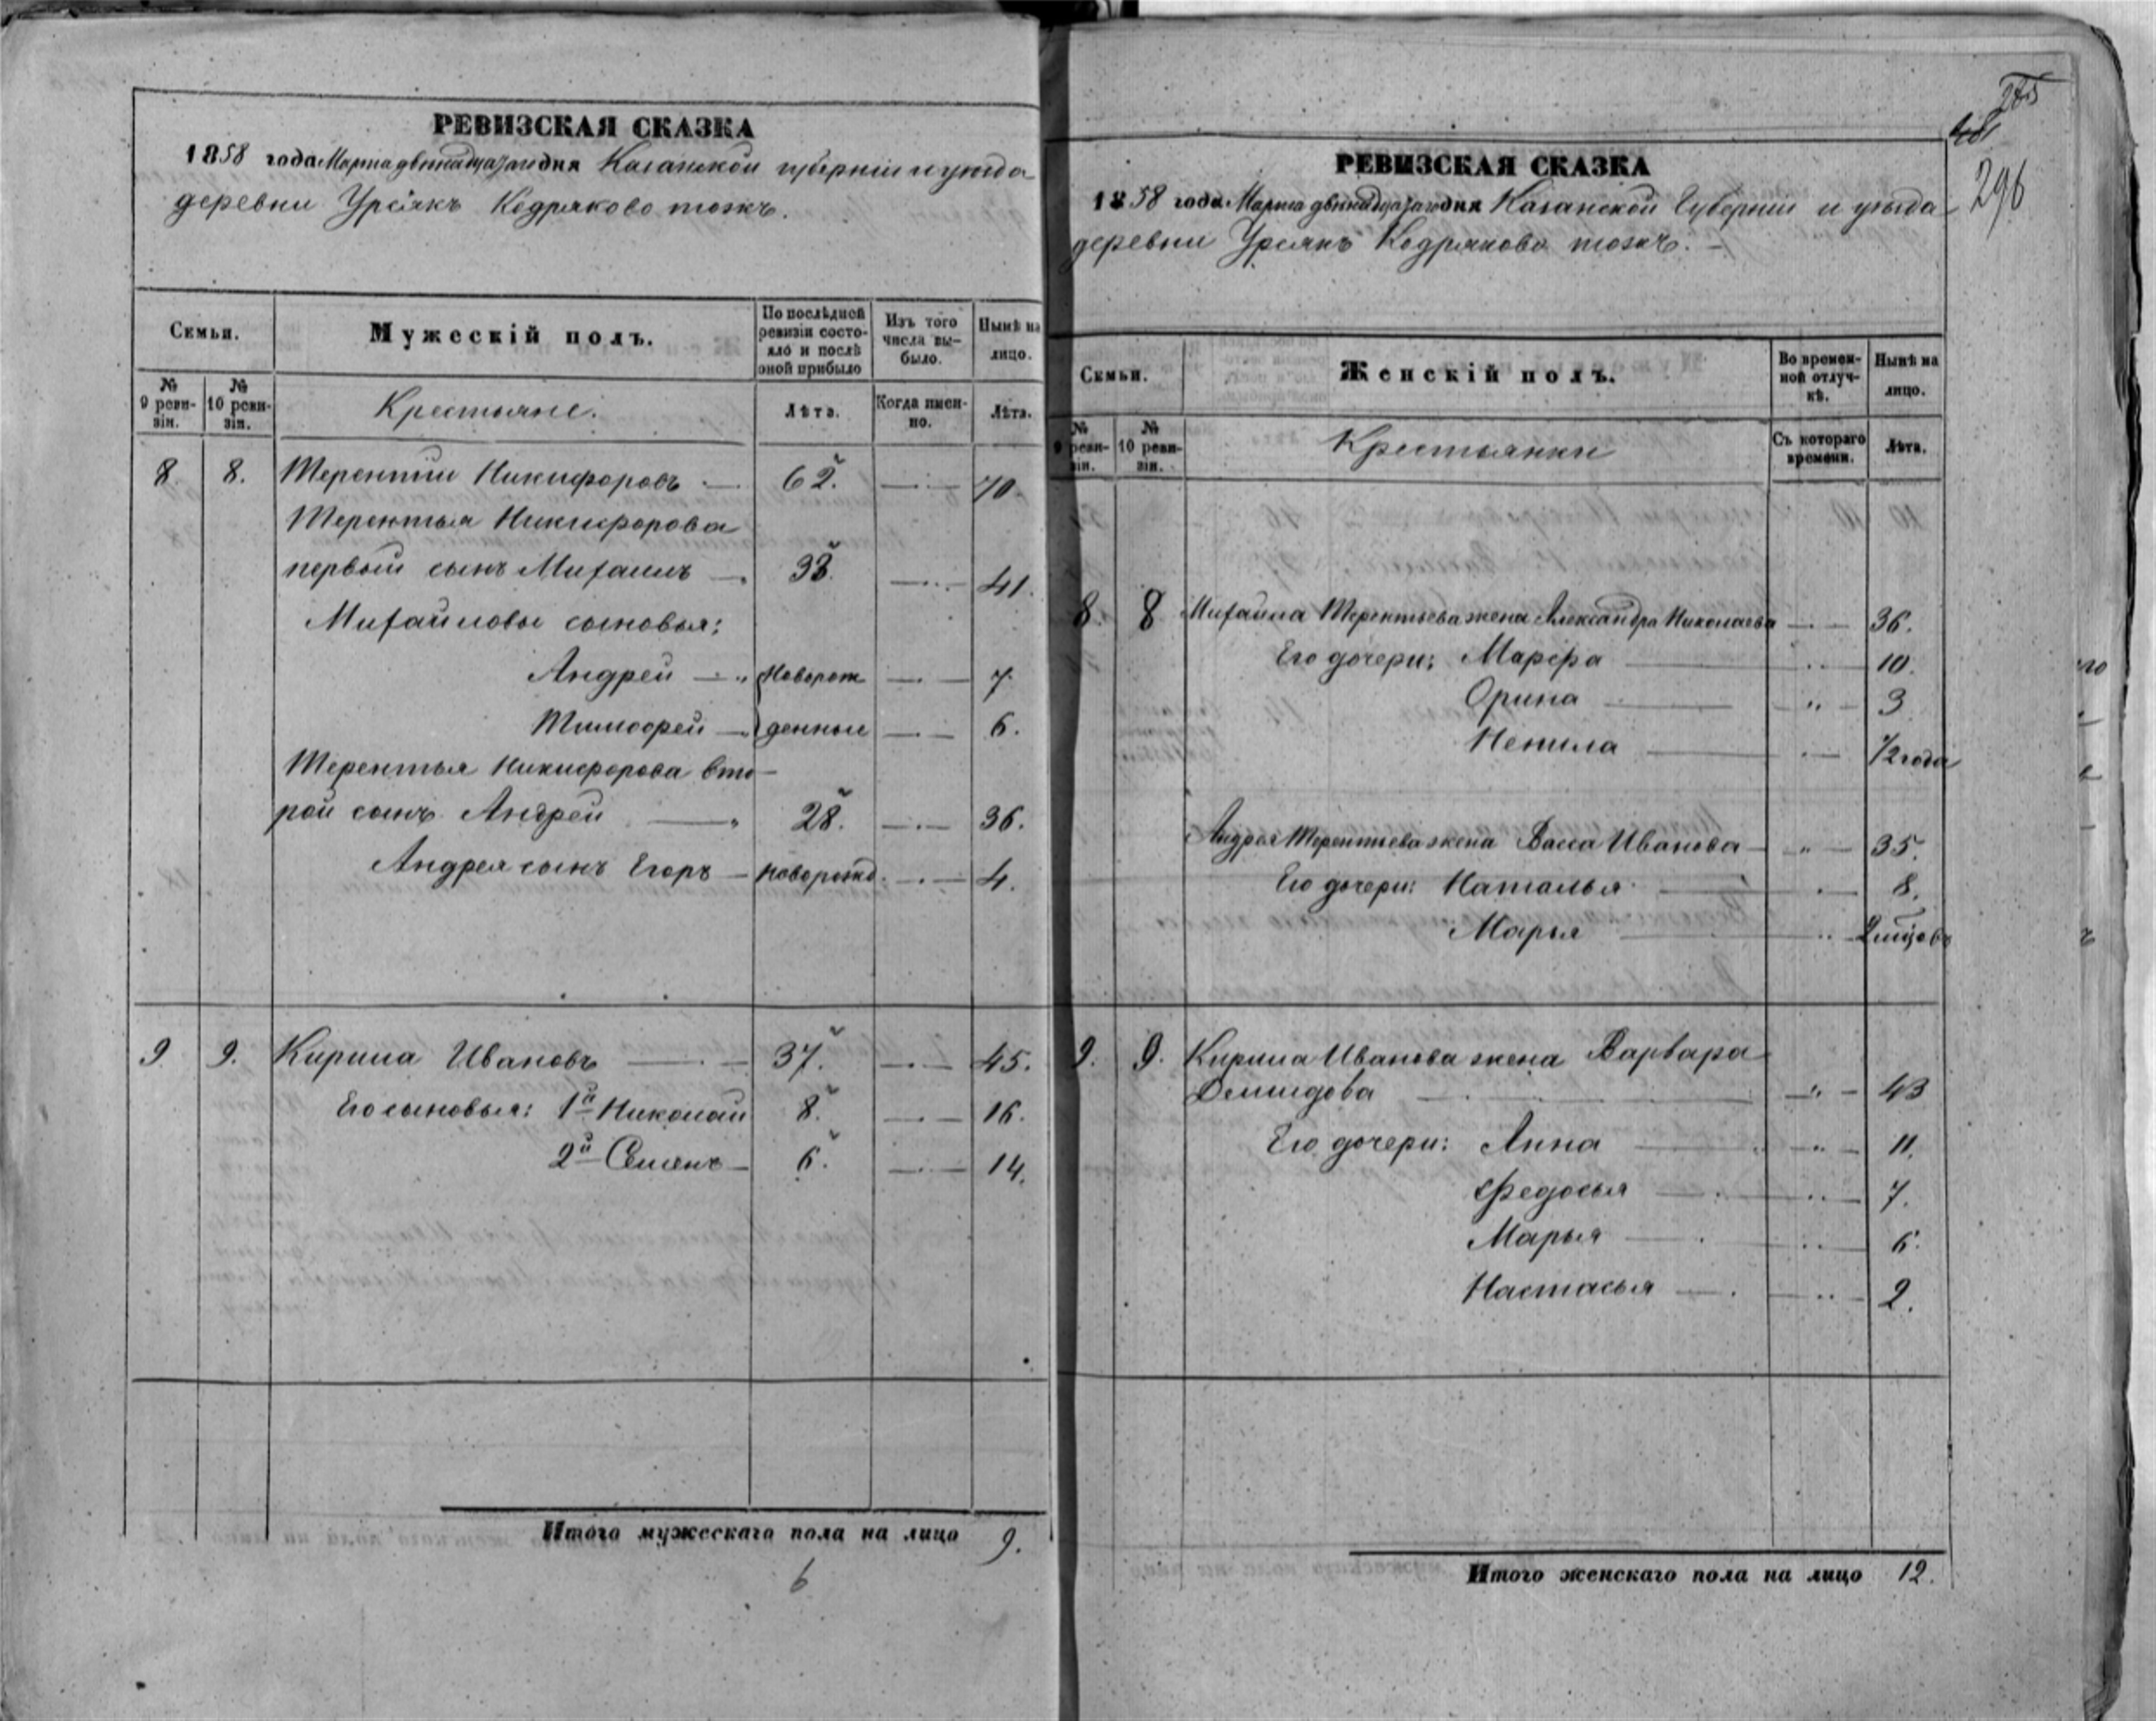 РЕВИЗСКАЯ СКАЗКА
1858 года Марта двенадцатаго дня Казанской губерніи и уѣзда
деревни Урсякъ Кодряково тожъ.
Семьи.
Мужескій полъ.
По послѣдней ревизіи состояло и послѣ оной прибыло
Изъ того числа выбыло.
Нынѣ на лицо.
№ 9 ревизіи.
№ 10 ревизіи.
Крестьяне.
Лѣта.
Когда именно.
Лѣта.
8. 8. Терентій Никифоровъ — 62. — 70.
Терентья Никифорова
первый сынъ Михаилъ — 33. — 41.
Михайловы сыновья:
Андрей — Новорож — 7.
Тимофей — денные — 6.
Терентья Никифорова вто-
рой сынъ Андрей — 28. — 36.
Андрея сынъ Егоръ — новорожд. — 4.
9 9. Кирила Ивановъ — 37. — 45.
Его сыновья: 1й Николай 8. — 16.
2й Семенъ — 6. — 14.
Итого мужескаго пола на лицо 9.
6
275
296
РЕВИЗСКАЯ СКАЗКА
1858 года Марта двенадцатаго дня Казанской Губерніи и уѣзда
деревни Урсякъ Кодряково тожъ. —
Семьи.
Женскій полъ.
Во временной отлучкѣ.
Нынѣ на лицо.
№ 9 ревизіи.
№ 10 ревизіи.
Крестьянки
Съ котораго времени.
Лѣта.
8. 8 Михайла Терентьева жена Александра Николаева — 36.
Его дочери: Марфа — 10.
Орина — 3
Ненила — 1/2 года
Андрея Терентьева жена Васса Иванова — 35.
Его дочери: Наталья — 8.
Марья — 2 мѣсцовъ
9. 9. Кирила Иванова жена Варвара
Демидова — 43
Его дочери: Анна — 11.
Федосья — 7.
Марья — 6.
Настасья — 2.
Итого женскаго пола на лицо 12.